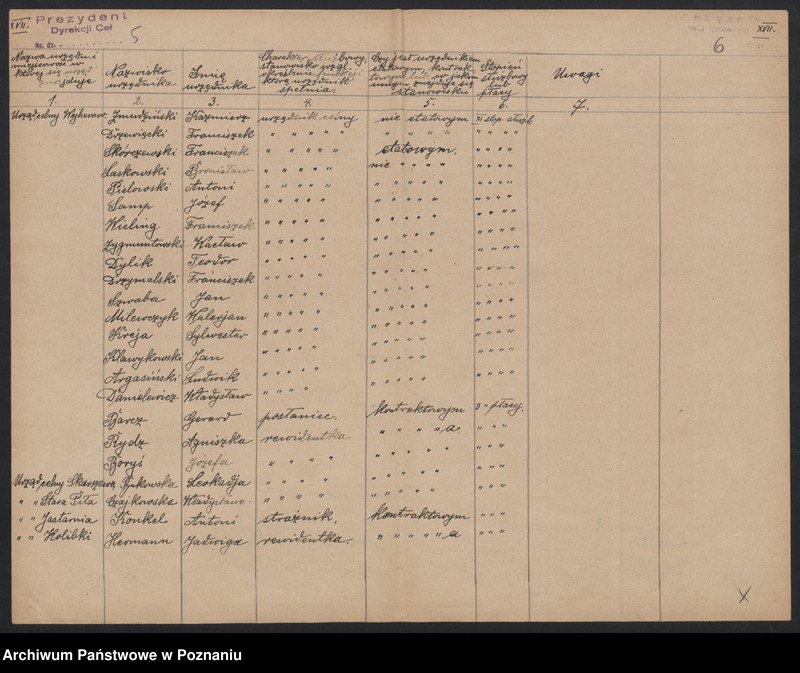 XVII.
Prezydent
Dyrekcji Ceł
Nr. dz.
5
6
XVII.
Nazwa urzędu i miejscowości w której się urząd znajduje
Nazwisko urzędnika
Imię urzędnika
Charakter służbowy, stanowisko wzgl. określenie funkcji którą urzędnik spełnia.
Czy jest urzędnikiem etatowym, kontraktowym lub w jakim innym znajduje się stanowisku
Stopień służbowy lub płacy
Uwagi
1. 2. 3. 4. 5. 6. 7.
Urząd celny Wejherowo Żmudziński Kazimierz urzędnik celny nie etatowym XI stop. służb.
Drzewięcki Franciszek " " " " " " " " " " " "
Skórczewski Franciszek " " " " etatowym. " " " "
Laskowski Bronisław " " " " nie " " " " " " " "
Pielowski Antoni " " " " " " " " " " " "
Samp Józef " " " " " " " " " " " "
Wieling Franciszek " " " " " " " " " " " "
Zygmuntowski Wacław " " " " " " " " " " " "
Dylik Teodor " " " " " " " " " " " "
Drzymalski Franciszek " " " " " " " " " " " "
Szwaba Jan " " " " " " " " " " " "
Milewczyk Walerjan " " " " " " " " " " " "
Kreja Sylwester " " " " " " " " " " " "
Kławykowski Jan " " " " " " " " " " " "
Argasiński Ludwik " " " " " " " " " " " "
Danielewicz Władysław " " " "
Barcz Gerard posłaniec. kontraktowym 3 " płacy.
Rydz Agniszka rewidentka " " " " a. " " "
Boryś Józefa " " " " " " " " " " "
Urząd celny Skarszewy Bukowska Leokadja " " " " " " " " " " "
" " Stara Piła Czajkowska Władysława " " " " " " " " " " "
" " Jastarnia Konkel Antoni strażnik. kontraktowym " " "
" " Kolibki Hermann Jadwiga rewidentka. " " " " " a " " "
X
Archiwum Państwowe w Poznaniu